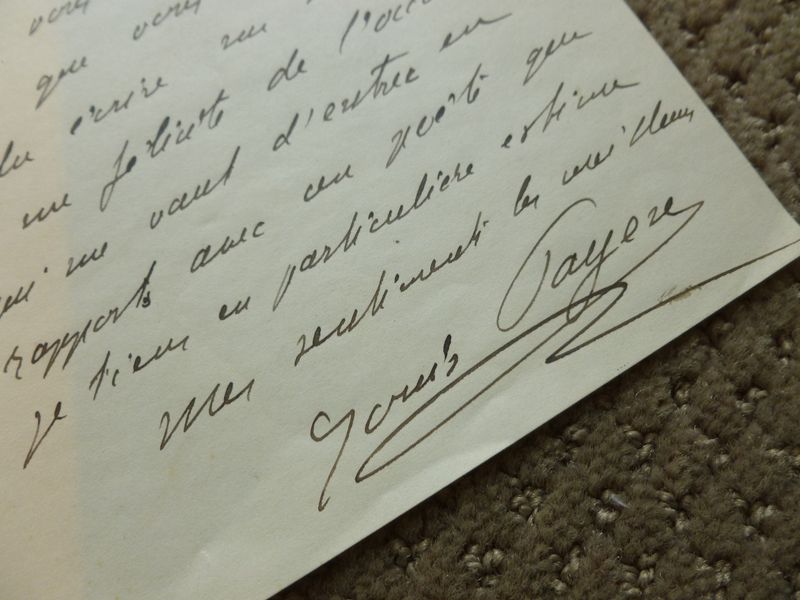 vous
que vous
écrire un
me félicite de l'occa
qui me vaut d'entrer en
rapports avec un poète que
je tiens en particulière estime
Mes sentiments les meilleurs
Louis Payen